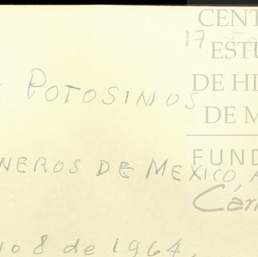 17
POTOSINOS
NEROS DE MEXICO A
io 8 de 1964.
CENT
ESTU
DE HI
DE M
FUND
Cár